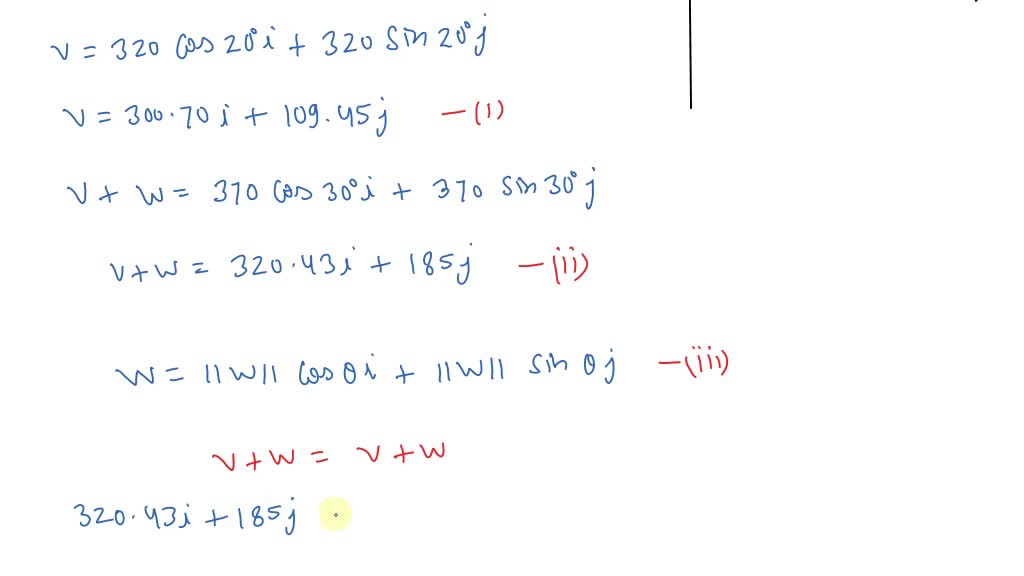 v = 320 cos 20° i + 320 sin 20° j
v = 300.70 i + 109.45 j —(i)
v + w = 370 cos 30° i + 370 sin 30° j
v + w = 320.43 i + 185 j —(ii)
w = ||w|| cos θ i + ||w|| sin θ j —(iii)
v + w = v + w
320.43 i + 185 j